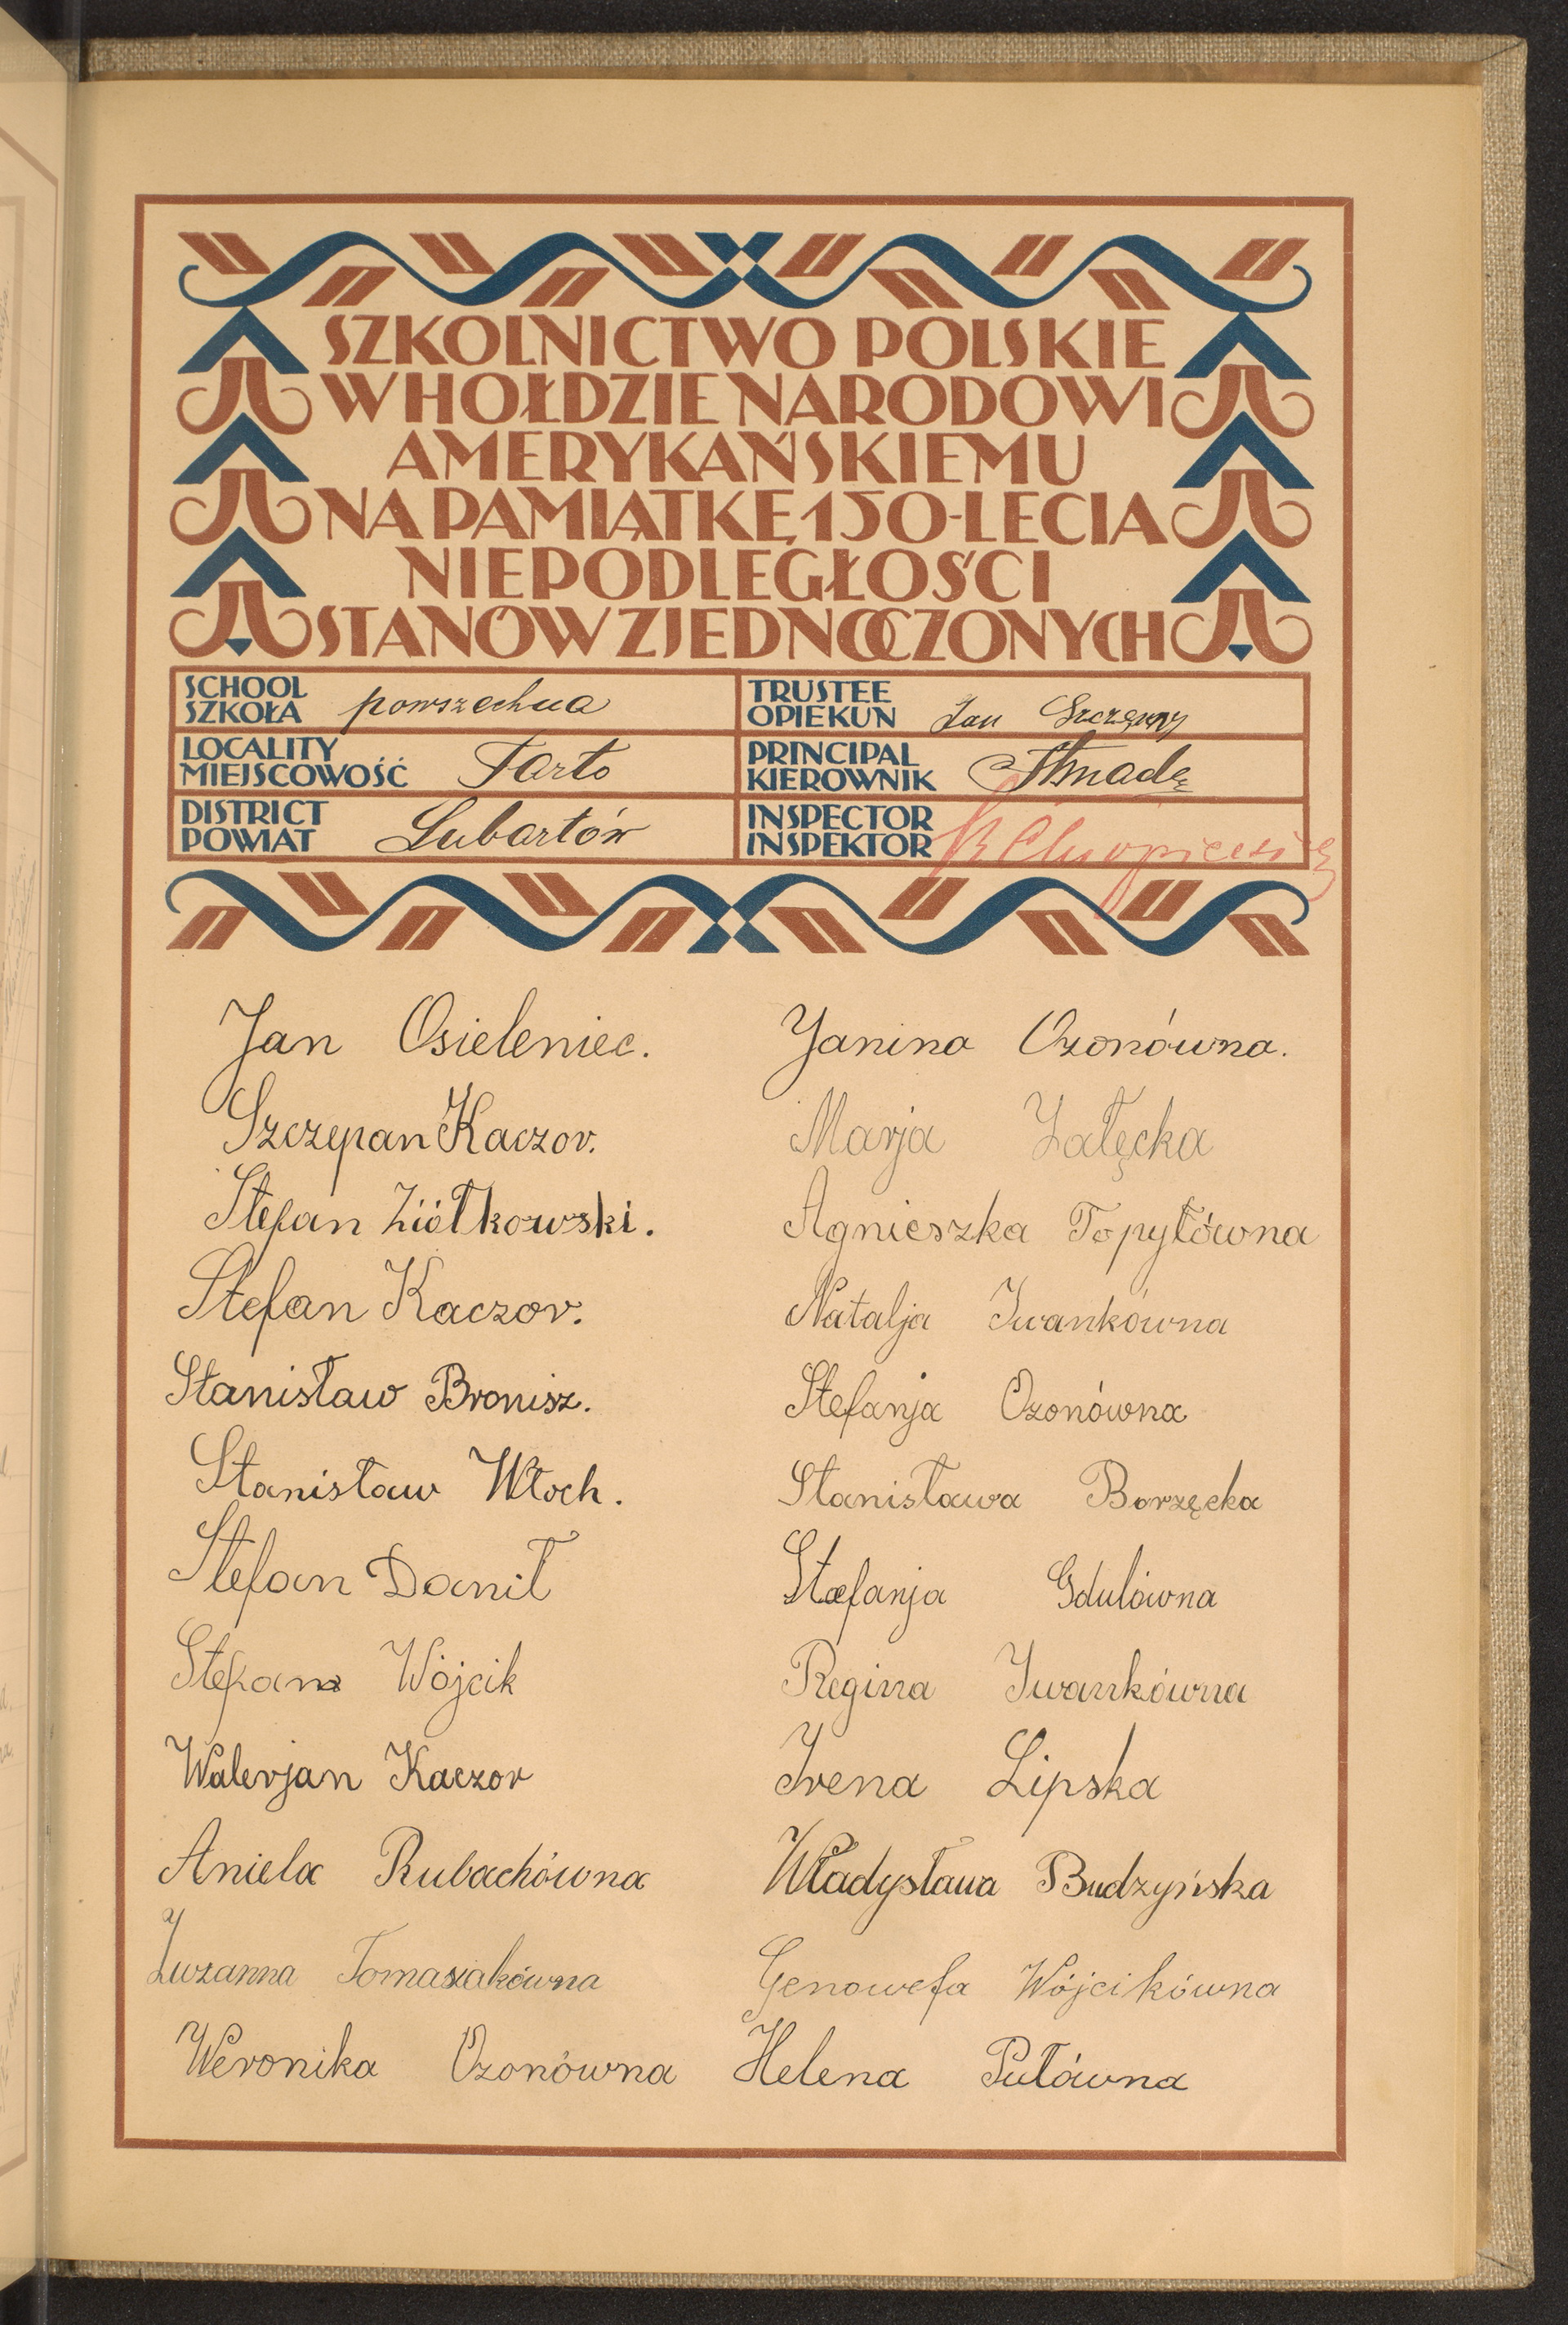 SZKOLNICTWO POLSKIE
W HOŁDZIE NARODOWI
AMERYKAŃSKIEMU
NA PAMIĄTKĘ 150-LECIA
NIEPODLEGŁOŚCI
STANÓW ZJEDNOCZONYCH
SCHOOL
SZKOŁA powszechna
TRUSTEE
OPIEKUN Jan Szczęsny
LOCALITY
MIEJSCOWOŚĆ Tarło
PRINCIPAL
KIEROWNIK
DISTRICT
POWIAT Lubartów
INSPECTOR
INSPEKTOR
Jan Osieleniec.
Szczepan Kaczor.
Stefan Ziółkowski.
Stefan Kaczor.
Stanisław Bronisz.
Stanisław Włoch.
Stefan Danił
Stefan Wójcik
Walerjan Kaczor
Aniela Rubachówna
Zuzanna Tomaszakówna
Weronika Ozonówna
Janina Ozonówna.
Marja Załęcka
Agnieszka Topyłówna
Natalja Iwankówna
Stefanja Ozonówna
Stanisława Borzęcka
Stefanja Gdulówna
Regina Iwankówna
Irena Lipska
Władysława Budzyńska
Genowefa Wójcikówna
Helena Putówna